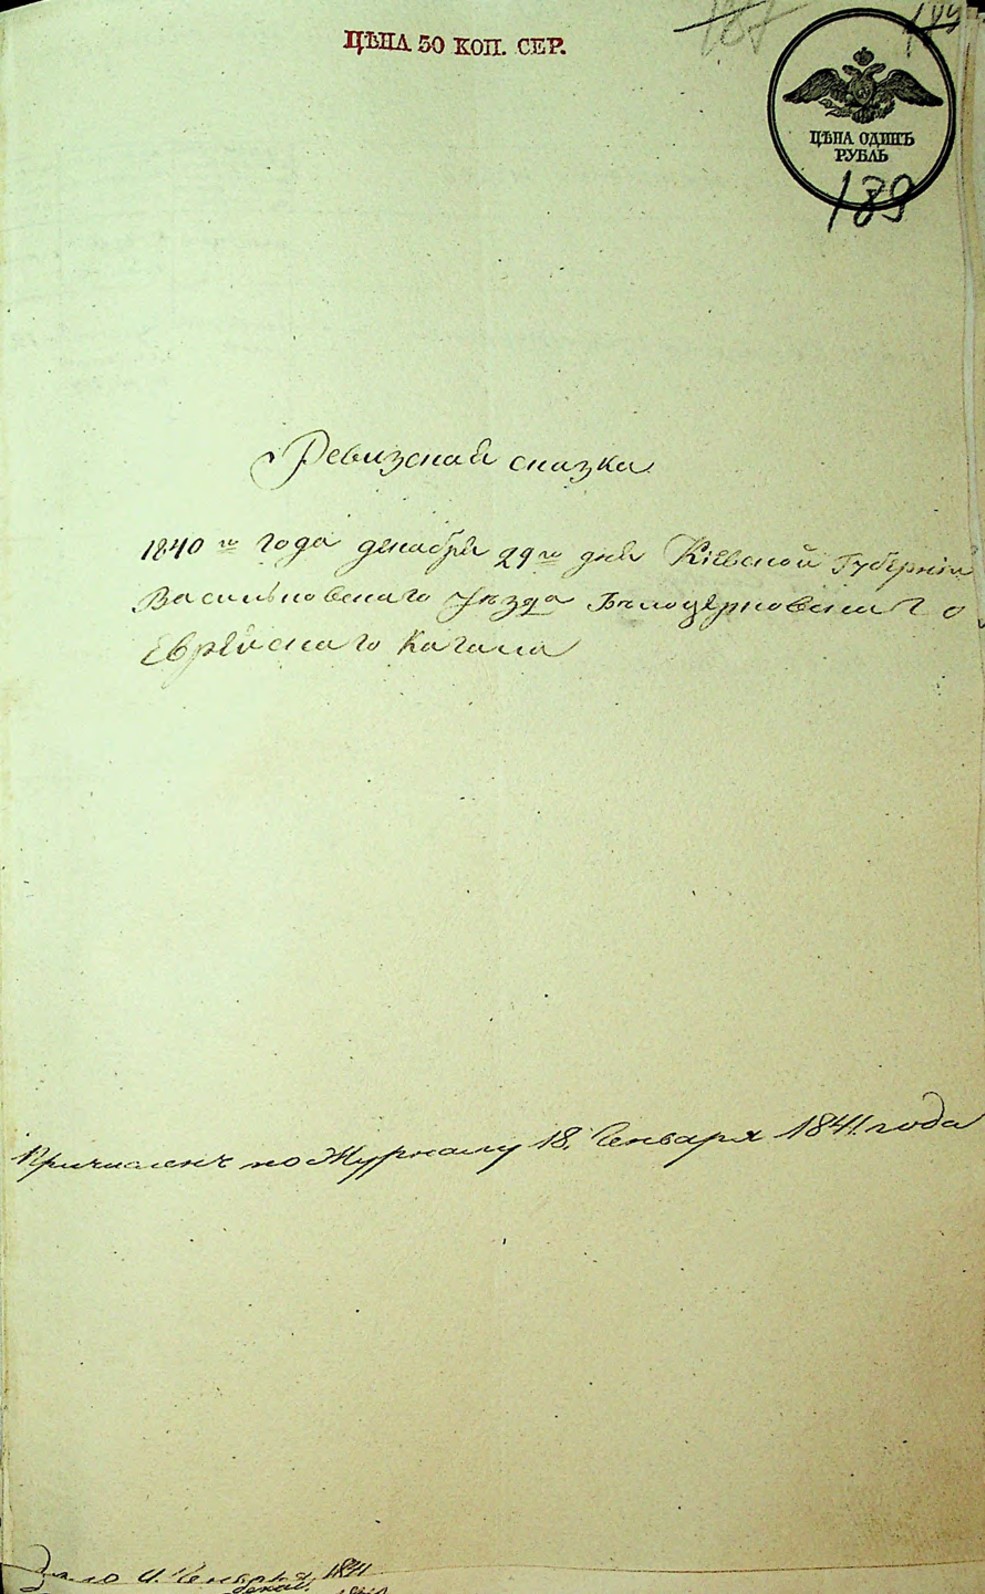 ЦѢНА 50 КОП. СЕР.
187
ЦѢНА ОДИНЪ
РУБЛЬ
189
Ревизская сказка
1840го года декабря 29го дня Кіевской Губерніи
Васильковскаго Уѣзда Бѣлоцерковскаго
Еврейскаго Кагала
Причисленъ по Журналу 18. Генваря 1841. года
1841